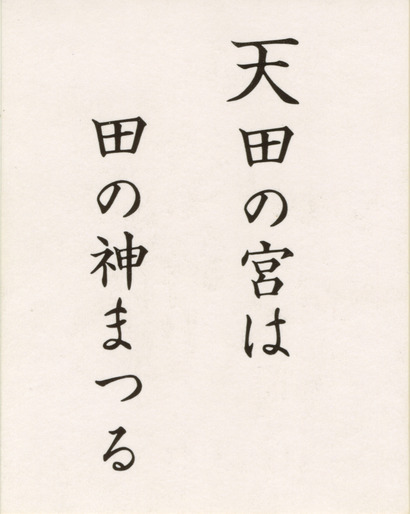 天田の宮は
田の神まつる